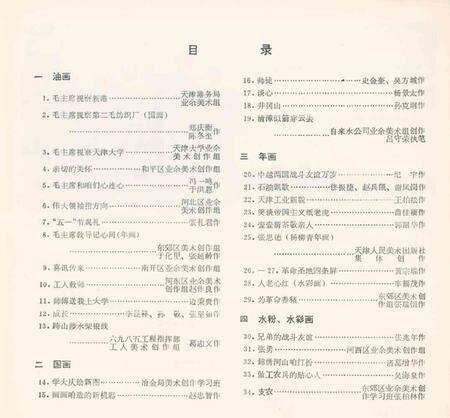 目　录
一 油画
1. 毛主席视察新港……天津港务局业余美术组
2. 毛主席视察第二毛纺织厂（国画）
……邓庆衡 陈冬至作
3. 毛主席视察天津大学……天津大学业余美术创作组
4. 亲切的关怀……和平区业余美术创作组
5. 毛主席和咱们心连心……冯一鸣 于洪恩作
6. 伟大领袖指方向……河北区业余美术创作组
7. "五一"节观礼……张礼君作
8. 毛主席教导记心间（年画）
……东郊区美术创作组 于化里、张延龄作
9. 喜讯传来……南开区业余美术创作组
10. 工人教师……河东区业余美术创作组
11. 师傅送我上大学……边秉贵作
12. 成长……孙敬、张呈作
13. 跨山涉水架银线
……六九八五工程指挥部工人美术创作组 葛志文作
二 国画
14. 学大庆绘新图……冶金局美术创作学习班
15. 咱造的新机器……赵忠智作
16. 师徒……史金奎、吴方城作
17. 谈心……杨景太作
18. 井冈山……孙克刚作
19. 银涛似箭穿云去
……自来水公司业余美术组创作 吕守荣执笔
三 年画
20. 中越两国战斗友谊万岁……纪宇作
21. 石油凯歌……张振捷、赵兵凯、谢凤岗作
22. 天津工业新貌……王柏松作
23. 突破帝国主义纸老虎……作
24. 作
25. 张思德（杨柳青年画）
……天津人民美术出版社集体创作
26. －27. 革命圣地四条屏……黄宗瑞作
28. 人老心红（水彩画）……车振茂作
29. 为革命养猪……东郊区美术创作组
四 水粉、水彩画
30. 兄弟的战斗友谊……张兆年作
31. 张勇……河西区业余美术创作组
32. 锦绣河山咱打扮……诸葛增华作
33. 做工农兵的贴心人……吴海泉作
34. 支农……东郊区业余美术创作学习班张柏林作